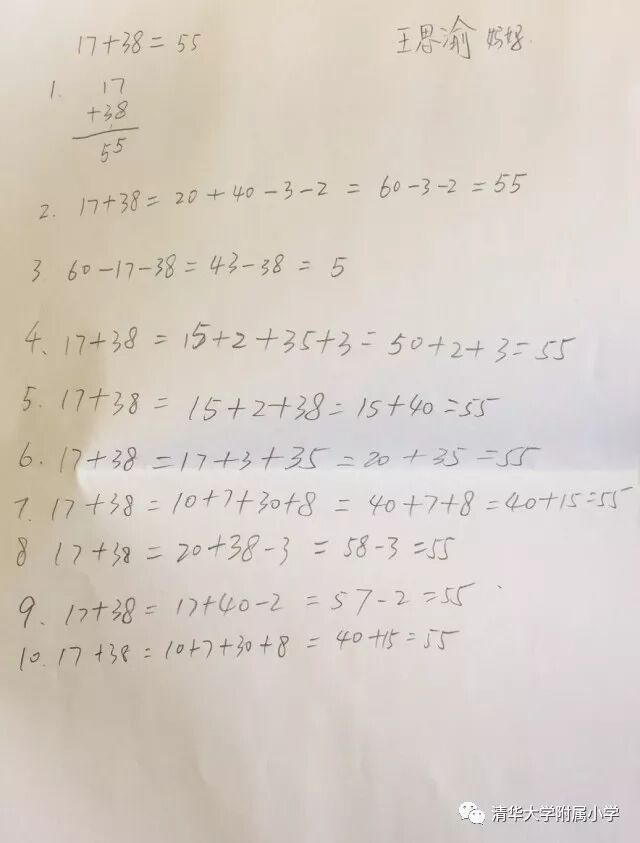 17+38=55
王思渝 妈妈
1. 17
+38
55
2. 17+38=20+40-3-2=60-3-2=55
3 60-17-38=43-38=5
4、17+38=15+2+35+3=50+2+3=55
5. 17+38=15+2+38=15+40=55
6. 17+38=17+3+35=20+35=55
7. 17+38=10+7+30+8=40+7+8=40+15=55
8 17+38=20+38-3=58-3=55
9、17+38=17+40-2=57-2=55
10. 17+38=10+7+30+8=40+15=55
清华大学附属小学